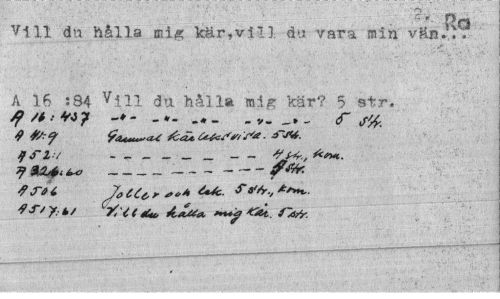 2. Ra
Vill du hålla mig kär,vill du vara min vän...
A 16 :84 Vill du hålla mig kär? 5 str.
A 16:437 -"- -"- -"- -"- -"- -"- 5 str.
A 41:9 Gammal kärleksvisa. 5 str.
A 52:1 - - - - - - - - 4 str., kom.
A 326:60 - - - - - - - - str.
A 506 Joller och lek. 5 str., kom.
A 517:61 Vill du hålla mig kär. 5 str.